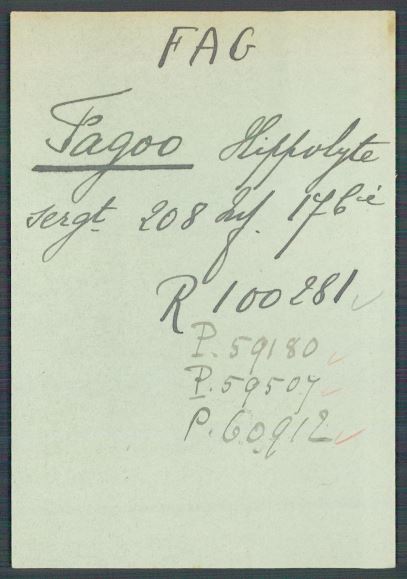 FAG
Fagoo Hippolyte
sergt. 208 Inf. 17 Cie
R 100281
P. 59180
P. 59507
P. 60912